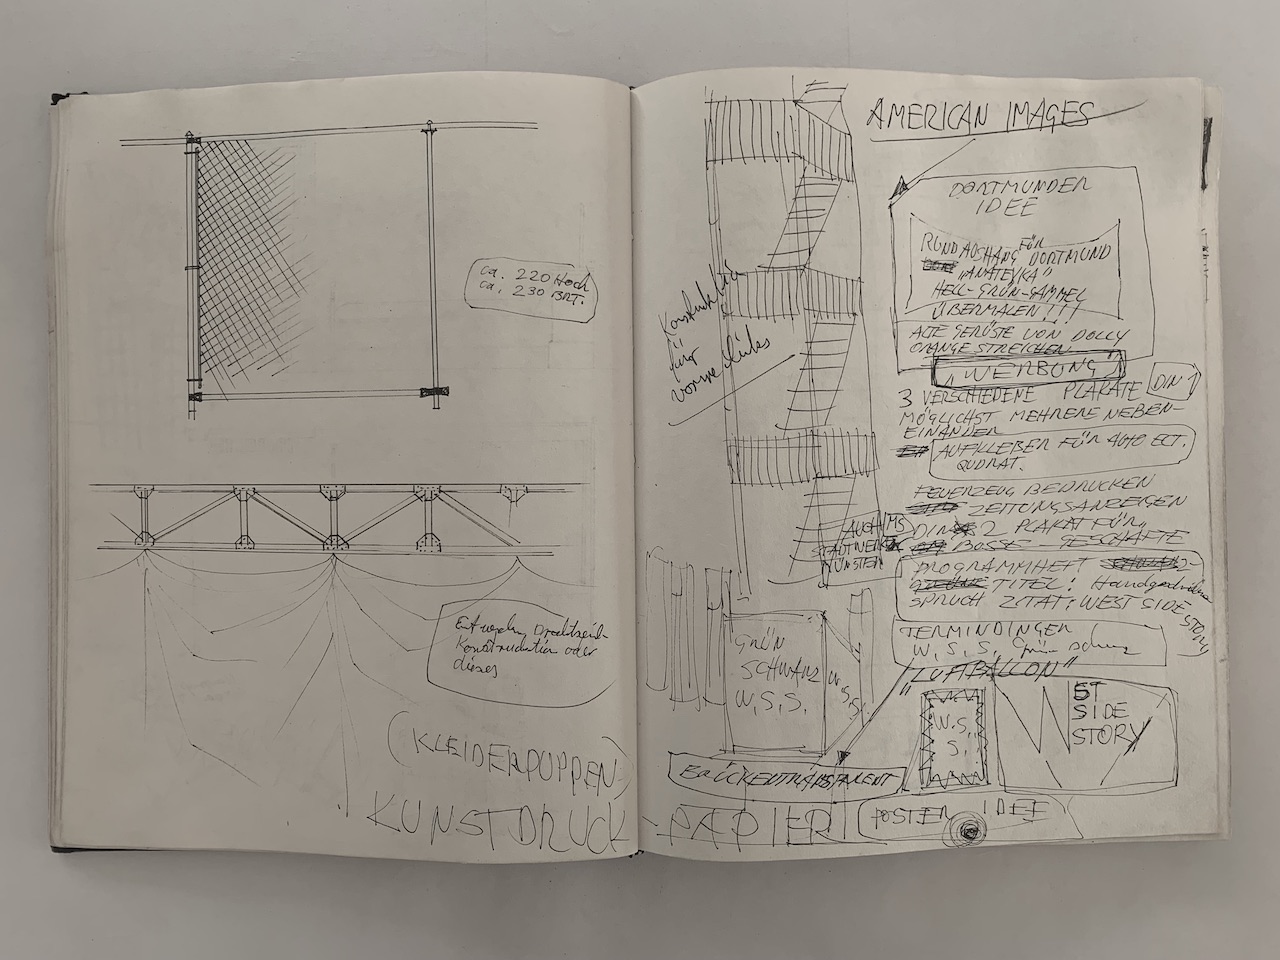 ca. 220 Hoch
ca. 230 BRT.
Entweder Drahtseil-
Konstruktion oder
dieses
(KLEIDERPUPPEN)
KUNSTDRUCK-PAPIER
AMERICAN IMAGES
DORTMUNDER
IDEE
RUNDAUSHANG FÜR
DORTMUND
"ANATEVKA"
HELL-GRÜN-GAMMEL
ÜBERMALEN!!!
ALTE GERÜSTE VON DOLLY
ORANGE STREICHEN
"WERBUNG"
3 VERSCHIEDENE PLAKATE DIN 1
MÖGLICHST MEHRERE NEBEN-
EINANDER
AUFKLEBER FÜR AUTO ECT.
QUDRAT.
FEUERZEUG BEDRUCKEN
ZEITUNGSANZEIGEN
DIN 2 PLAKAT FÜR
BOSSE GESCHÄFTE
AUCH MS
STADTWERKE
MÜNSTER
PROGRAMMHEFT
TITEL! Handgeschrieben
SPRUCH ZITAT: WEST SIDE
STORY
TERMINDINGER
W.S.S. Grün Schwarz
"LUFTBALLON"
Konstruktion
für
vorne links
GRÜN
SCHWARZ
W.S.S.
W.S.S.
W.S.
S.
WEST
SIDE
STORY
BRÜCKENTRANSPARENT
POSTER IDEE